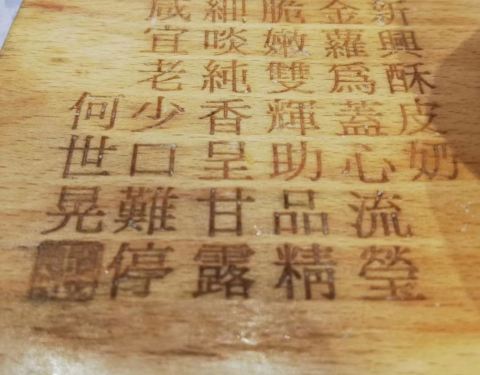 新興酥皮奶
金羅爲蓋心流瑩
脆嫩雙輝助品精
細啖純香呈甘露
咸宜老少口難停
何世晃